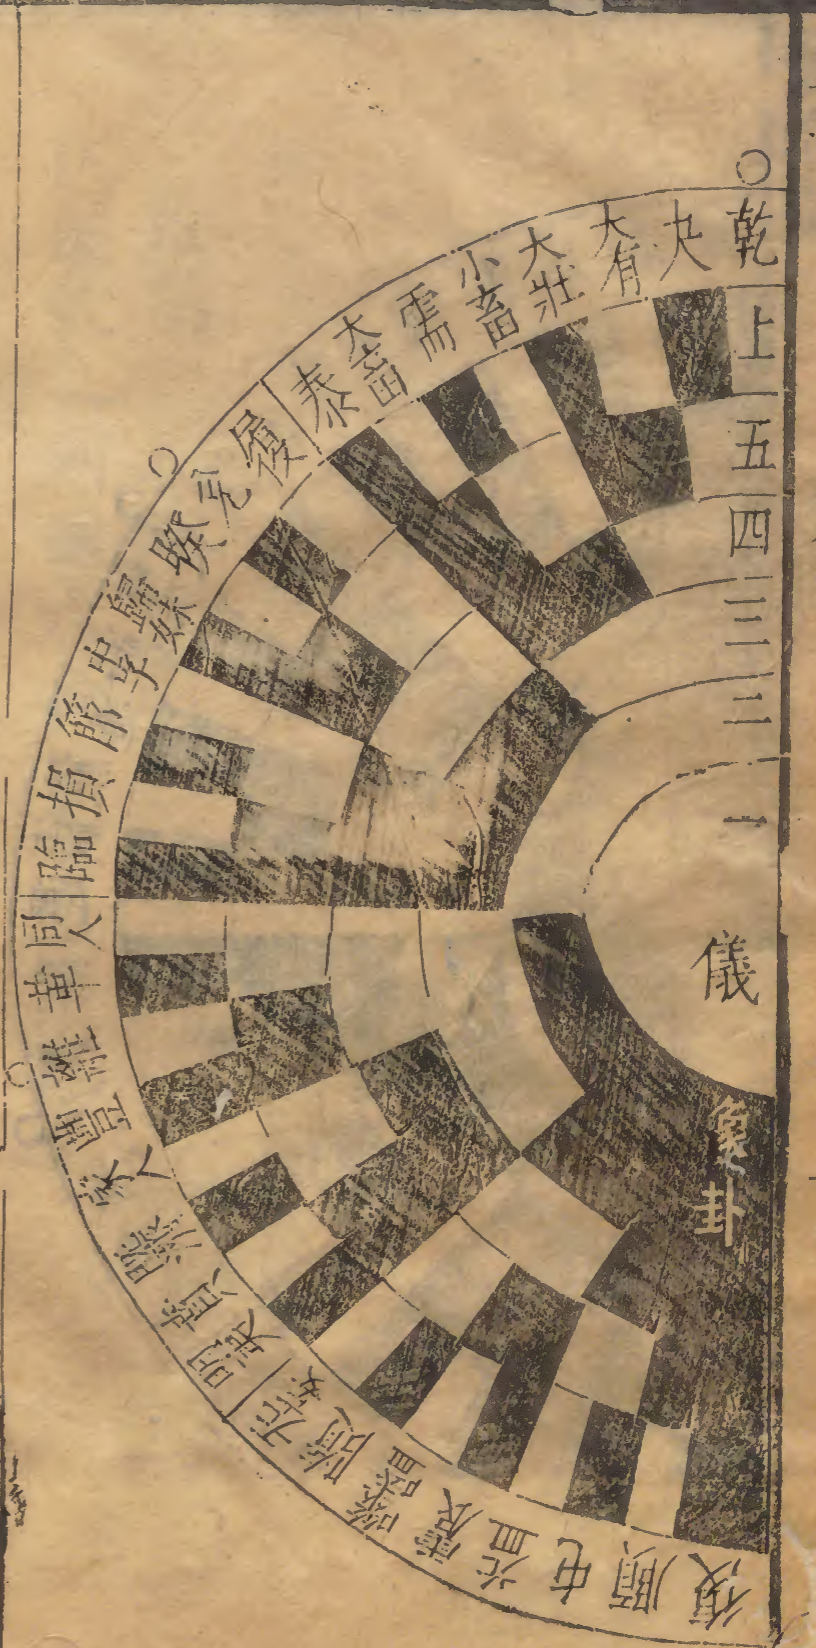 乾
夬
大有
大壯
小畜
需
大畜
泰
履
兌
睽
歸妹
中孚
節
損
臨
同人
革
離
豐
家人
既濟
賁
明夷
无妄
隨
噬嗑
震
益
屯
頤
復
上
五
四
三
二
一
儀
象
卦